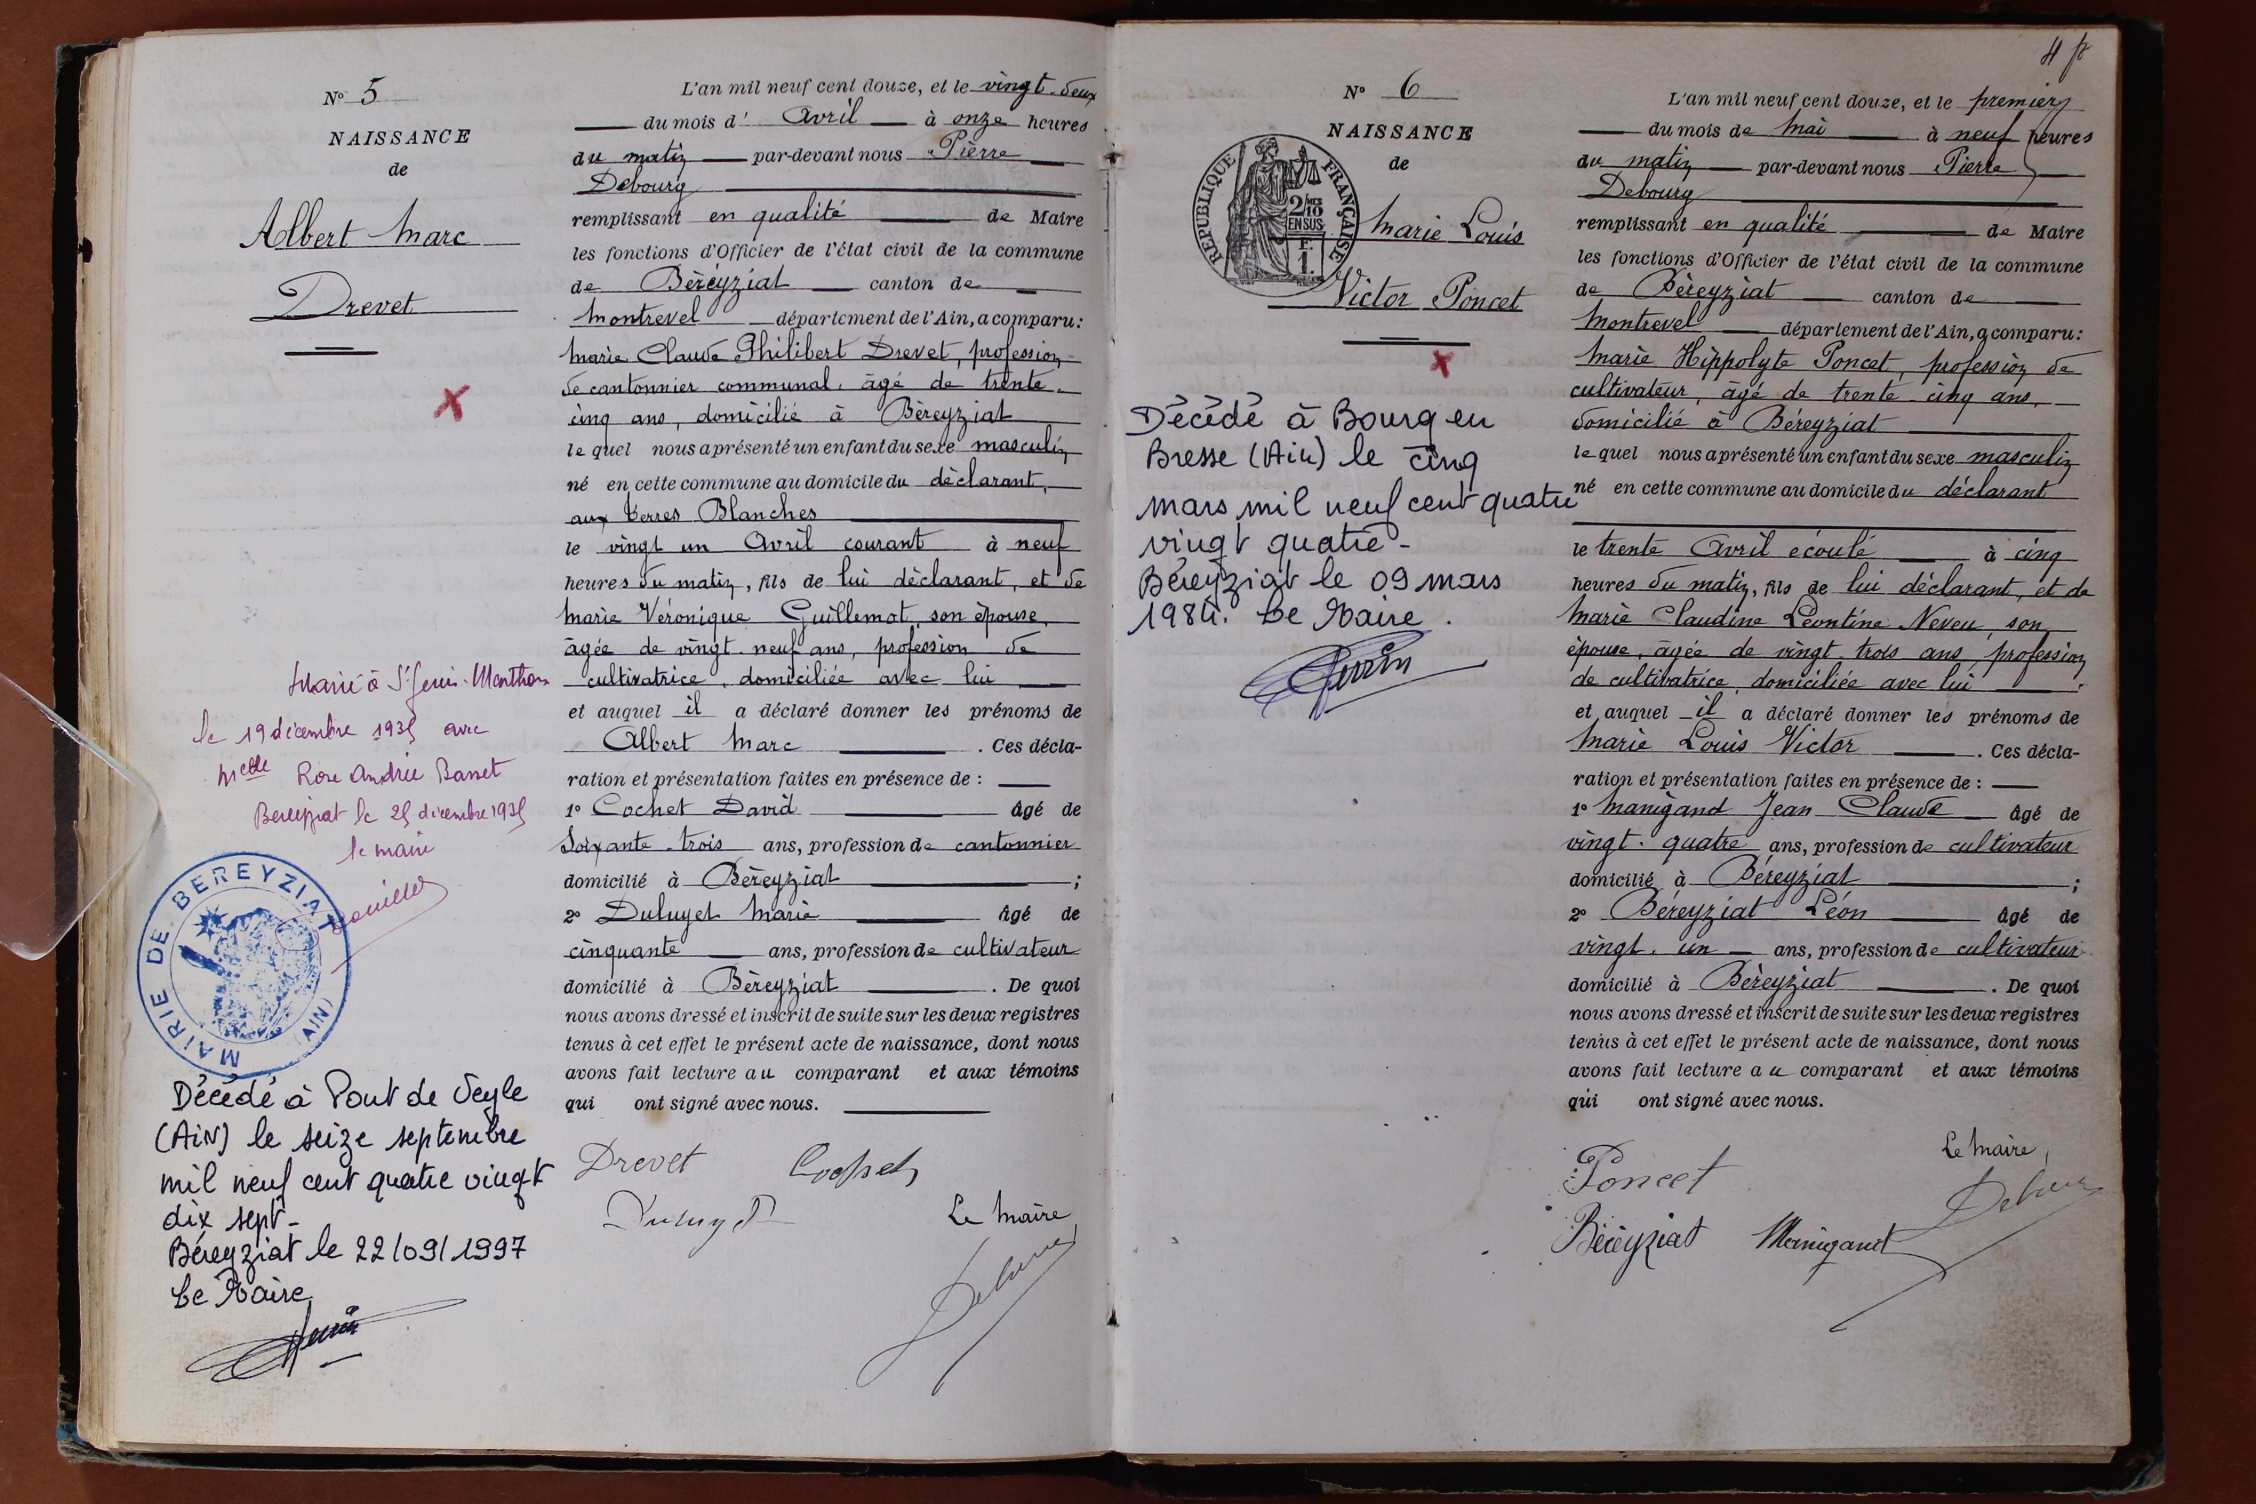 N° 5
NAISSANCE
de
Albert Marc
Drevet
Marié à St Genis-Menthon
le 19 décembre 1935 avec
Melle Rose Andrée Basset
Bereyziat le 25 décembre 1935
le maire
MAIRIE DE BEREYZIAT
(AIN)
Décédé à Pont de Veyle
(AiN) le seize septembre
mil neuf cent quatre vingt
dix sept-
Béreyziat le 22/09/1997
Le Maire
L'an mil neuf cent douze, et le vingt-deux
du mois d' Avril à onze heures
du matin par-devant nous Pierre
Debourg
remplissant en qualité de Maire
les fonctions d'Officier de l'état civil de la commune
de Béréyziat canton de
Montrevel département de l'Ain, a comparu:
Marie Claude Philibert Drevet, profession
de cantonnier communal, âgé de trente-
cinq ans, domicilié à Béreyziat
le quel nous a présenté un enfant du sexe masculin
né en cette commune au domicile du déclarant,
aux Terres Blanches
le vingt un Avril courant à neuf
heures du matin, fils de lui déclarant, et de
Marie Véronique Guillemot, son épouse,
âgée de vingt-neuf ans, profession de
cultivatrice, domiciliée avec lui
et auquel il a déclaré donner les prénoms de
Albert Marc . Ces décla-
ration et présentation faites en présence de :
1° Cochet David âgé de
soixante-trois ans, profession de cantonnier
domicilié à Béreyziat ;
2° Duluyet Marie âgé de
cinquante ans, profession de cultivateur
domicilié à Béreyziat . De quoi
nous avons dressé et inscrit de suite sur les deux registres
tenus à cet effet le présent acte de naissance, dont nous
avons fait lecture au comparant et aux témoins
qui ont signé avec nous.
Drevet Cochet
Duluyet Le Maire
Debourg
4
N° 6
NAISSANCE
de
REPUBLIQUE FRANÇAISE
2/10
EN SUS
F.
1.
Marie Louis
Victor Poncet
Décédé à Bourg en
Bresse (Ain) le cinq
mars mil neuf cent quatre
vingt quatre-
Béreyziat le 09 mars
1984. Le Maire.
Perrin
L'an mil neuf cent douze, et le premier
du mois de Mai à neuf heures
du matin par-devant nous Pierre
Debourg
remplissant en qualité de Maire
les fonctions d'Officier de l'état civil de la commune
de Béreyziat canton de
Montrevel département de l'Ain, a comparu:
Marie Hippolyte Poncet, profession de
cultivateur, âgé de trente-cinq ans,
domicilié à Béreyziat
le quel nous a présenté un enfant du sexe masculin
né en cette commune au domicile du déclarant
le trente Avril écoulé à cinq
heures du matin, fils de lui déclarant, et de
Marie Claudine Léontine Neveu, son
épouse, âgée de vingt-trois ans, profession
de cultivatrice, domiciliée avec lui .
et auquel il a déclaré donner les prénoms de
Marie Louis Victor . Ces décla-
ration et présentation faites en présence de :
1° Manigand Jean Claude âgé de
vingt-quatre ans, profession de cultivateur
domicilié à Béreyziat ;
2° Béreyziat Léon âgé de
vingt-un ans, profession de cultivateur
domicilié à Béreyziat . De quoi
nous avons dressé et inscrit de suite sur les deux registres
tenus à cet effet le présent acte de naissance, dont nous
avons fait lecture au comparant et aux témoins
qui ont signé avec nous.
Poncet Le Maire,
Debourg
Béreyziat Manigand